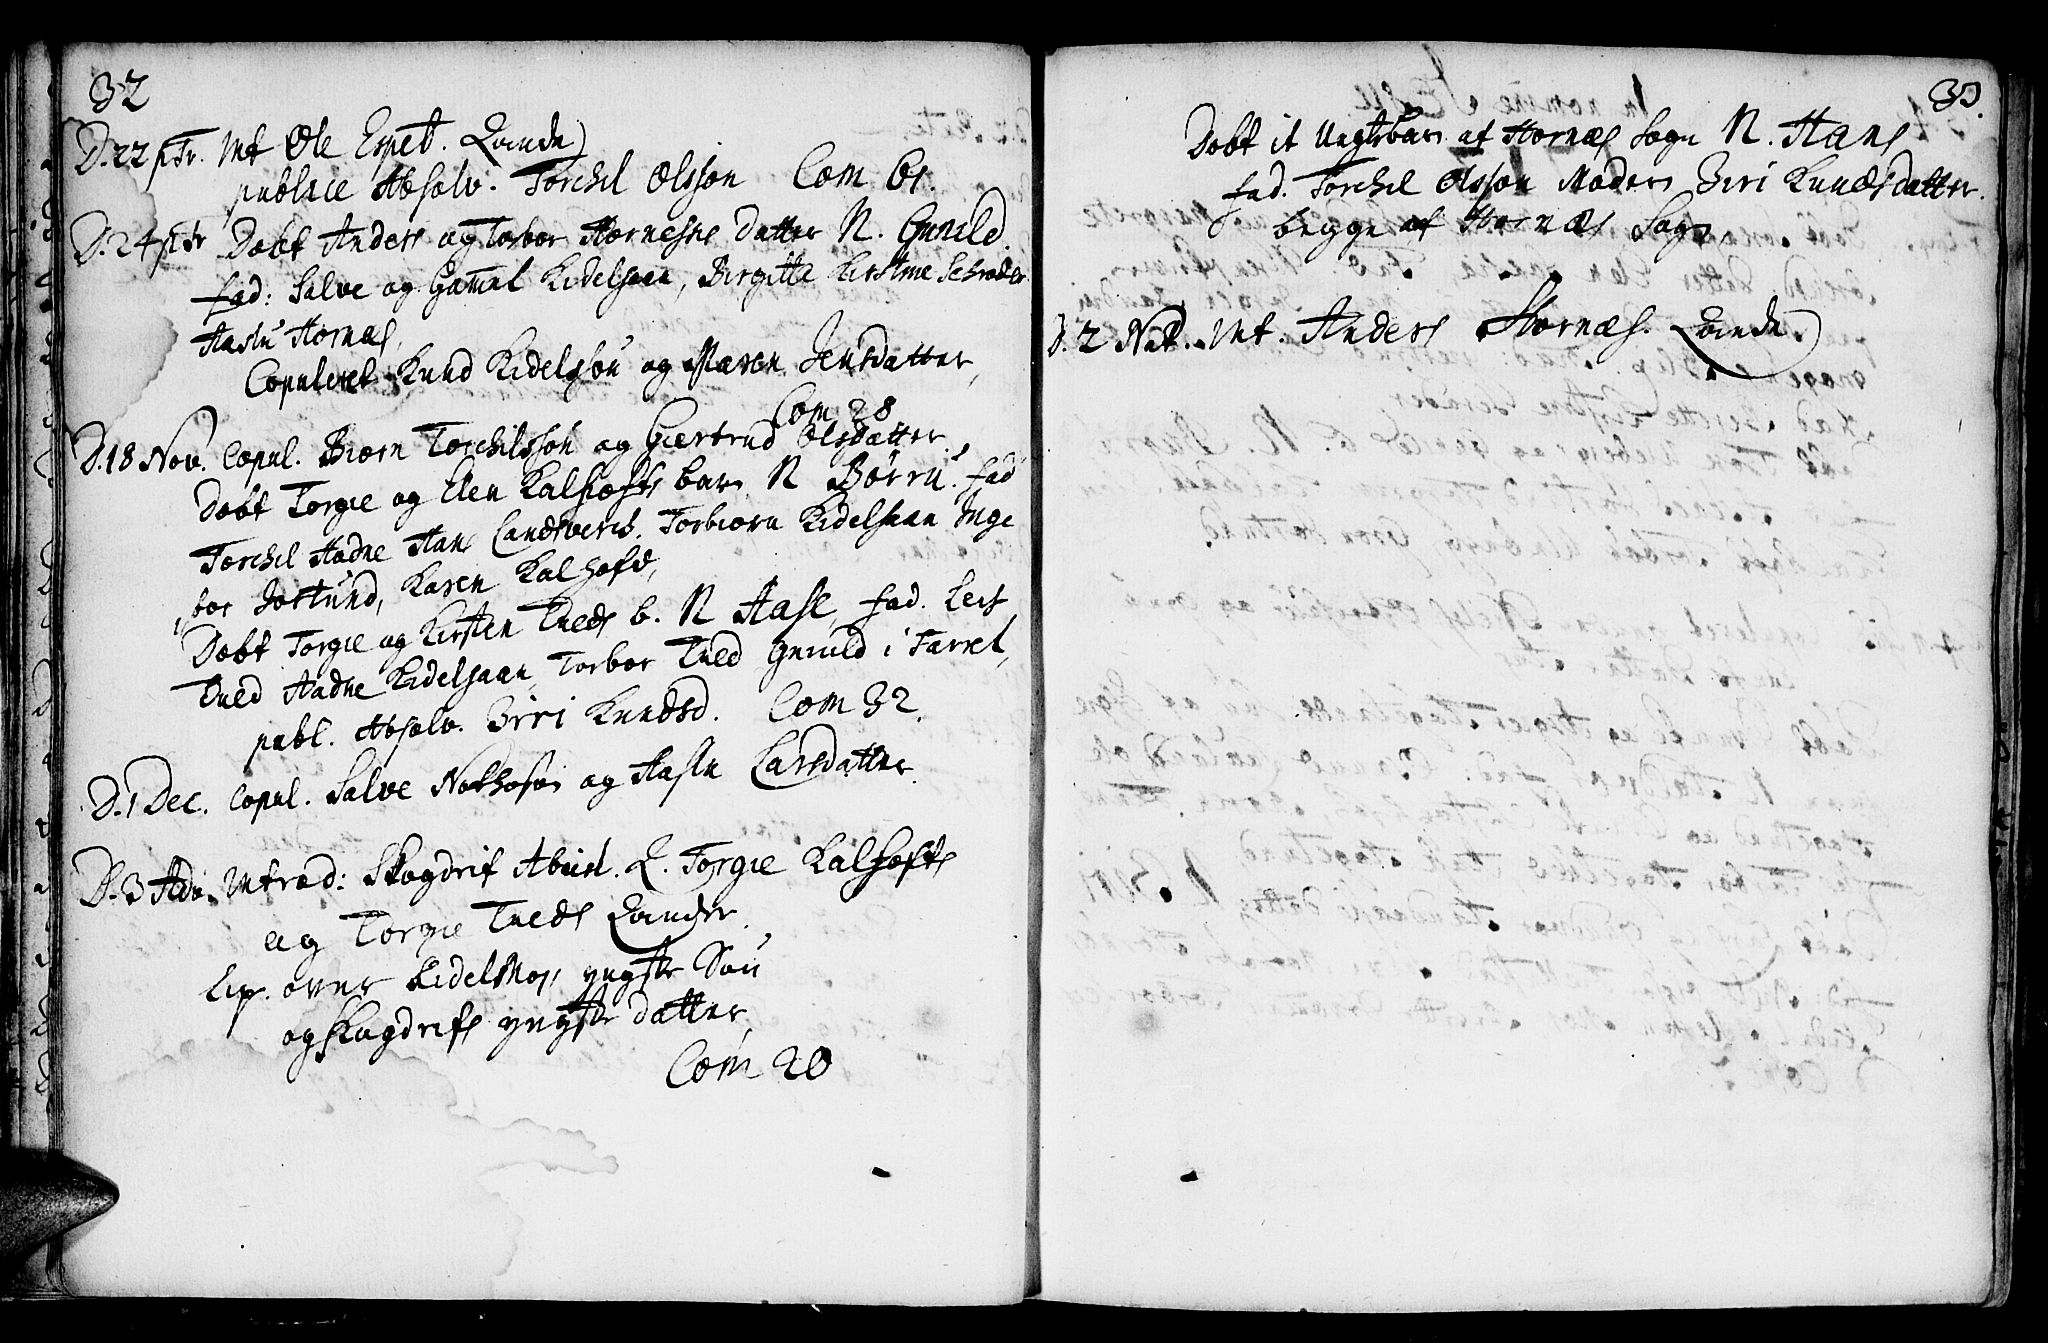 32
D. 22 p Tr. Int. Ole Espet. Qvinde
publice Absolv. Torchel Olsson Com 61.
D. 24 p Tr Døbt Anders og Torbor Hornesses datter N. Gunild.
fad: Salve og Gamel Kidelsaan, Birgitta Kirstine Schrøder
Aaslu Hornæs,
Copuleret Knud Kidelssøn og Maren Jensdatter,
Com 28
D. 18 Nov. Copul. Biørn Torchildssøn og Giertrud Olsdatter.
Døbt Torgie og Elen Kalhofts barn N Børru. fad
Torchel Aadne Hans Landsverch. Torbiørn Kidelsaan Inge
bor Jortund, Karen Kalhofd,
Døbt Torgie og Kirsten Tveds b. N Aase, fad. Leif
Tved Aadne Kidelsaan, Torbor Tved Gunild i Farret,
publ. Absolv. Siri Knudsd. Com 32.
D. 1 Dec. Copul. Salve Nottosøn og Aaslu Larsdatter.
D. 3 Adv. Introd: Skogdrif Abud. Q. Torgie Kalhofts
og Torgie Tveds Qvinder.
Lip. over Kidelsaas yngste Søn
og Skogdrifs yngste datter,
Com 20
33.
Døbt it Uægtebarn af Hornæs Sogn N. Hans
fad. Torchel Olsson Moder Siri Knudsdatter.
begge af Hornæs Sogn,
D. 2 Nat. Int. Anders Hornæs. Qvinde.